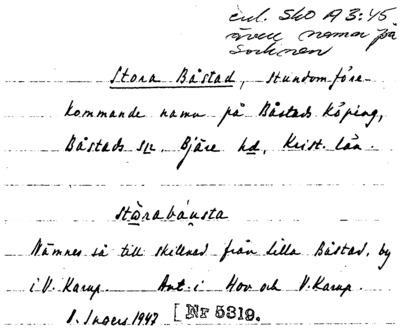 enl. SkO A 3:45
även namn på
socknen
Stora Båstad, stundom före-
kommande namn på Båstads köping,
Båstads sn, Bjäre hd, Krist. län.
Nämnes så till skillnad från Lilla Båstad, by
i V. Karup. Ant. i Hov och V. Karup.
1947 [Nr 5319.